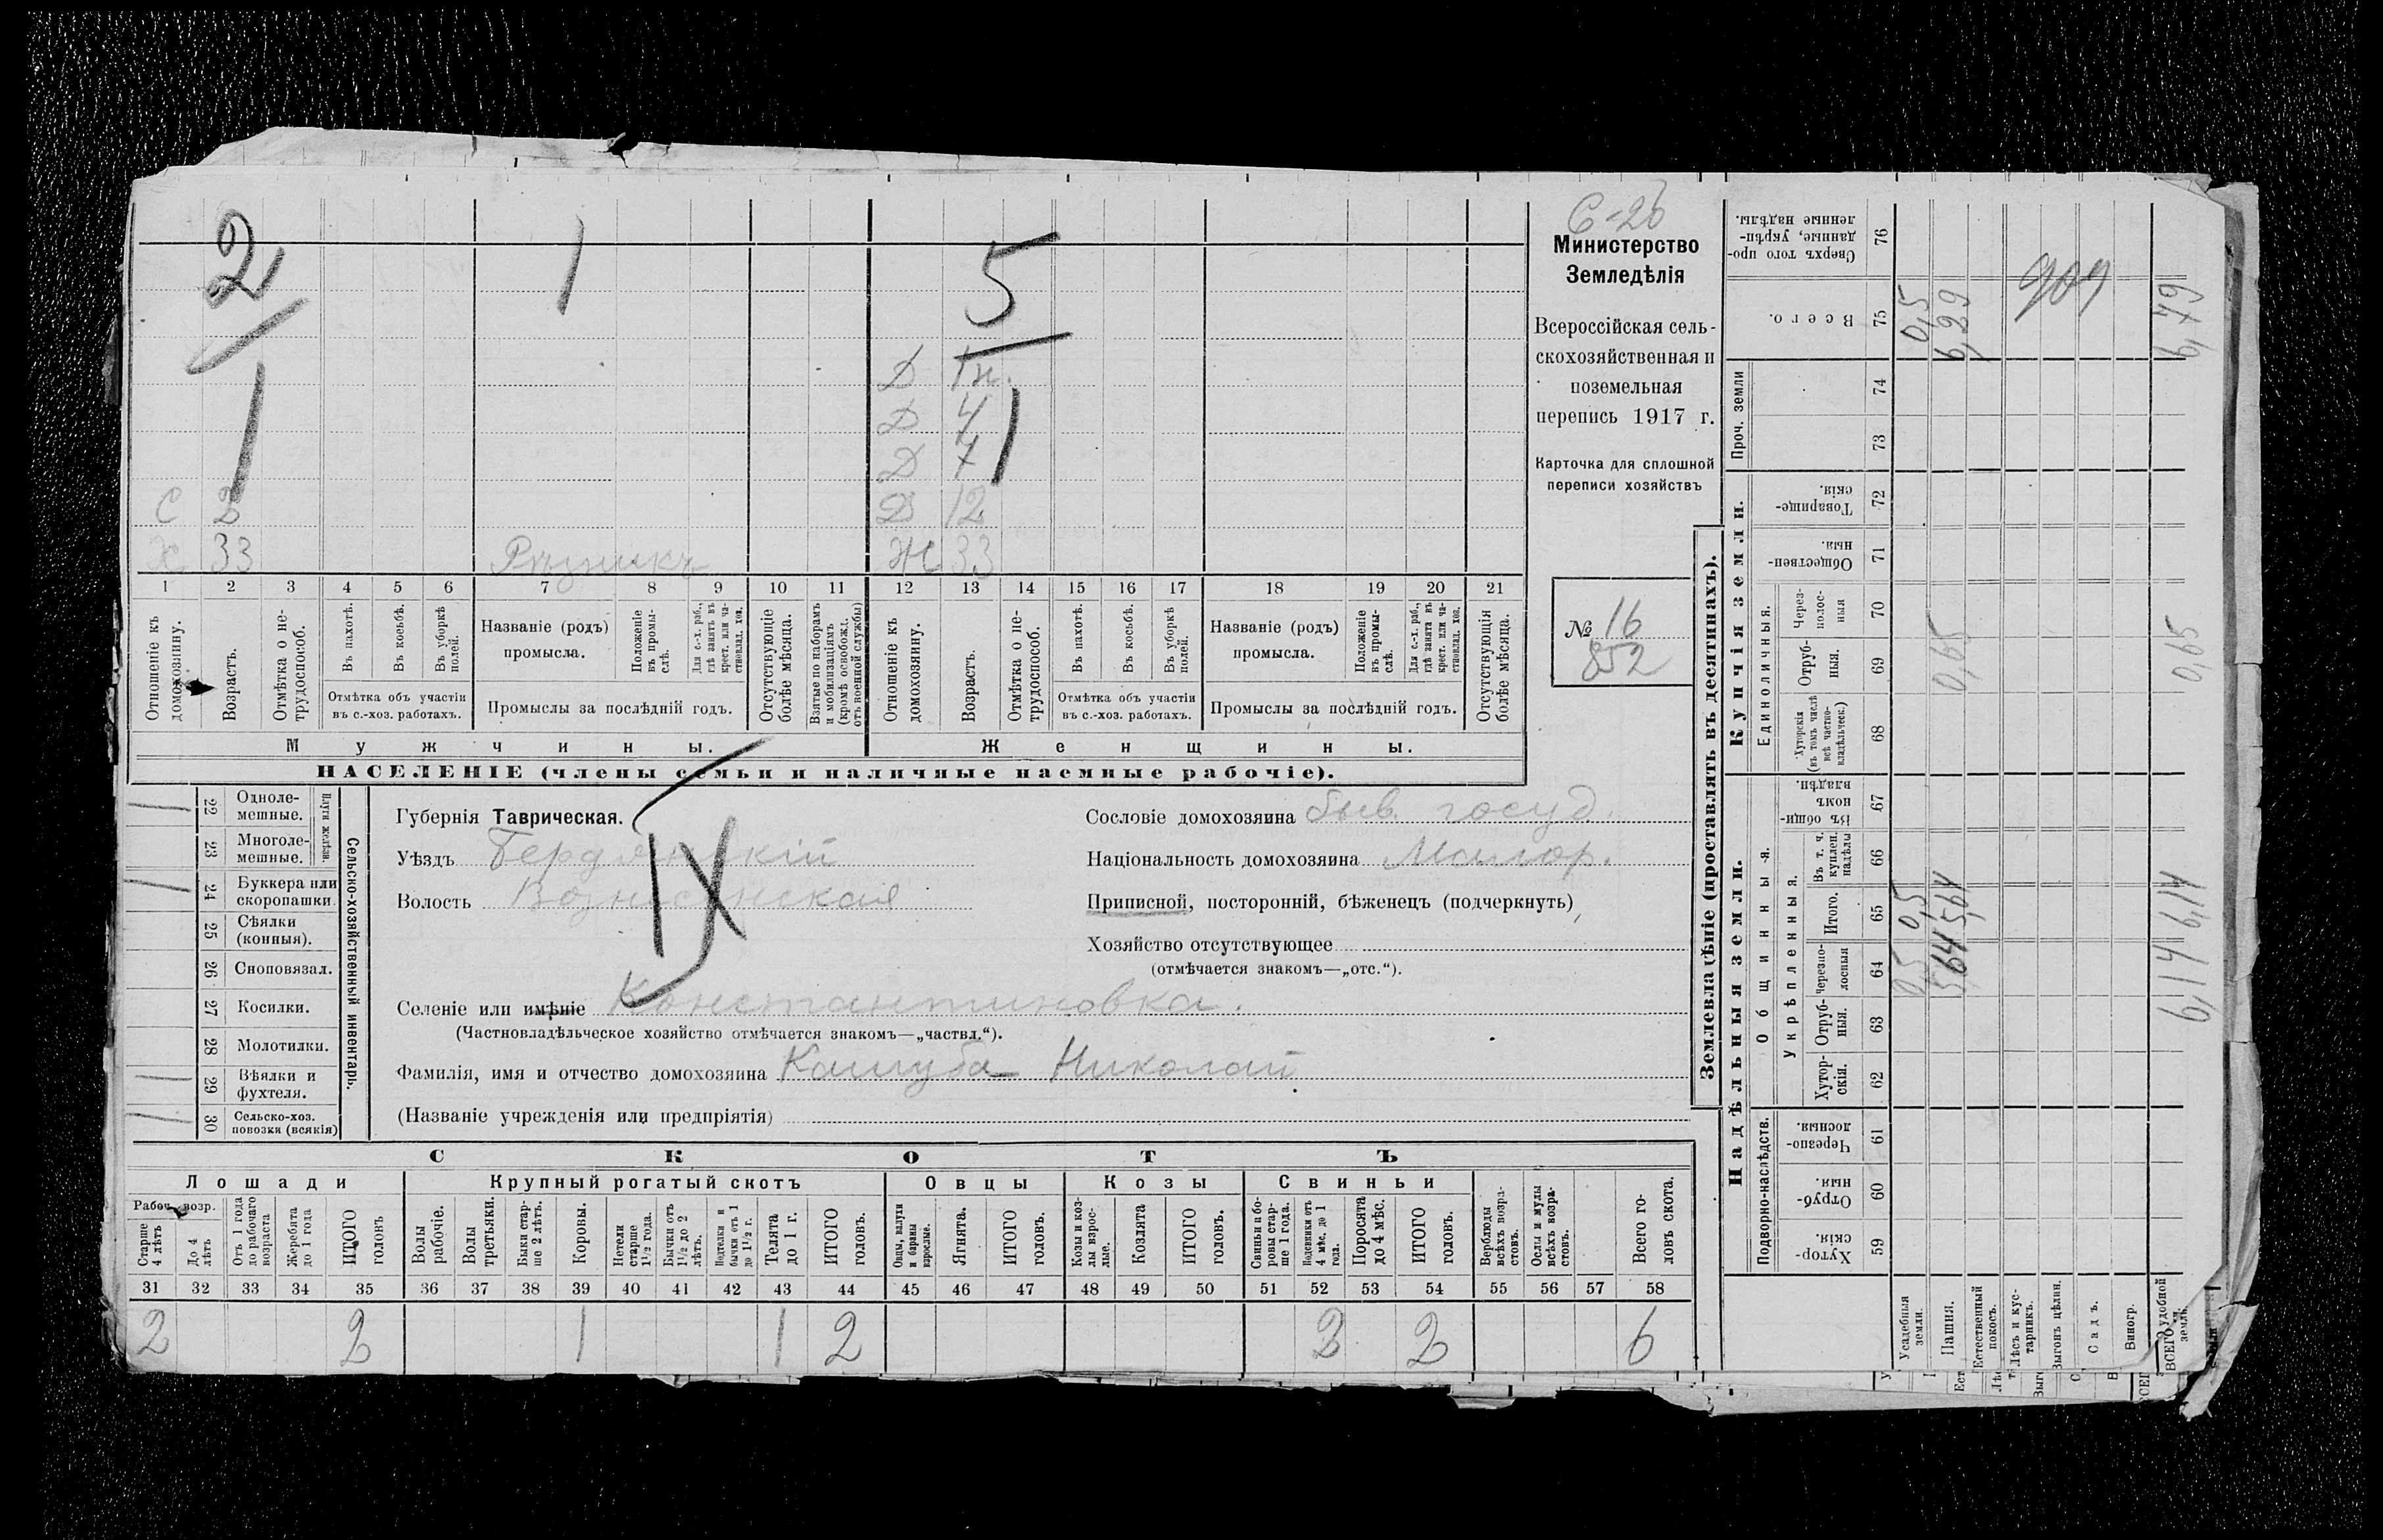 2 1 5
Д 1н.
Д 4
Д 7
С 2 Д 12
Х 33 Рѣзникъ Ж 33
1 2 3 4 5 6 7 8 9 10 11 12 13 14 15 16 17 18 19 20 21
Отношеніе къ домохозяину.
Возрастъ.
Отмѣтка о нетрудоспособ.
Въ пахотѣ.
Въ косьбѣ.
Въ уборкѣ полей.
Отмѣтка объ участіи въ с.-хоз. работахъ.
Названіе (родъ) промысла.
Положеніе въ промыслѣ.
Для с.-х. раб., гдѣ занятъ въ крест. или частновлад. хоз.
Промыслы за послѣдній годъ.
Отсутствующіе болѣе мѣсяца.
Взятые по наборамъ и мобилизаціямъ (кромѣ освобожд. отъ военной службы)
Отношеніе къ домохозяину.
Возрастъ.
Отмѣтка о нетрудоспособ.
Въ пахотѣ.
Въ косьбѣ.
Въ уборкѣ полей.
Отмѣтка объ участіи въ с.-хоз. работахъ.
Названіе (родъ) промысла.
Положеніе въ промыслѣ.
Для с.-х. раб., гдѣ занята въ крест. или частновлад. хоз.
Промыслы за послѣдній годъ.
Отсутствующія болѣе мѣсяца.
Мужчины. Женщины.
НАСЕЛЕНІЕ (члены семьи и наличные наемные рабочіе).
С-2б
Министерство
Земледѣлія
Всероссійская сель-
скохозяйственная и
поземельная
перепись 1917 г.
Карточка для сплошной
переписи хозяйствъ
№ 16
852
22 Одноле-
мешные.
23 Многоле-
мешные.
Плуги желѣзн.
24 Буккера или
скоропашки.
25 Сѣялки
(конныя).
26 Сноповязал.
27 Косилки.
28 Молотилки.
29 Вѣялки и
фухтеля.
30 Сельско-хоз.
повозки (всякія)
Сельско-хозяйственный инвентарь.
Губернія Таврическая.
Уѣздъ Бердянскій
Волость Вознесенская
IX
Селеніе или имѣніе Константиновка.
(Частновладѣльческое хозяйство отмѣчается знакомъ—„частвл.“).
Фамилія, имя и отчество домохозяина Кашуба Николай
(Названіе учрежденія или предпріятія)
Сословіе домохозяина быв. госуд.
Національность домохозяина Малор.
Приписной, посторонній, бѣженецъ (подчеркнуть)
Хозяйство отсутствующее
(отмѣчается знакомъ—„отс.“).
СКОТЪ
Лошади Крупный рогатый скотъ Овцы Козы Свиньи
Рабоч. возр.
Старше 4 лѣтъ
До 4 лѣтъ
Отъ 1 года до рабочаго возраста
Жеребята до 1 года
ИТОГО головъ
Волы рабочіе.
Волы третьяки.
Быки старше 2 лѣтъ.
Коровы.
Нетели старше 1½ года.
Бычки отъ 1½ до 2 лѣтъ.
Подтелки и бычки отъ 1 до 1½ г.
Телята до 1 г.
ИТОГО головъ.
Овцы, валухи и бараны взрослые.
Ягнята.
ИТОГО головъ.
Козы и козлы взрослые.
Козлята
ИТОГО головъ.
Свиньи и боровы старше 1 года.
Подсвинки отъ 4 мѣс. до 1 года.
Поросята до 4 мѣс.
ИТОГО головъ.
Верблюды всѣхъ возрастовъ.
Ослы и мулы всѣхъ возрастовъ.
Всего головъ скота.
31 32 33 34 35 36 37 38 39 40 41 42 43 44 45 46 47 48 49 50 51 52 53 54 55 56 57 58
2 2 1 1 2 2 2 6
Землевладѣніе (проставлять въ десятинахъ).
Надѣльныя земли. Купчія земли. Проч. земли
Подворно-наслѣдств.
Общинныя.
Укрѣпленныя.
Единоличныя.
Хуторскія. 59
Отрубныя. 60
Черезполосныя. 61
Хуторскія. 62
Отрубныя. 63
Черезполосныя 64
Итого. 65
Въ т. ч. куплен. надѣлы 66
Въ общинномъ владѣн. 67
Хуторскія (въ томъ числѣ всѣ частновладѣльческ.) 68
Отрубныя. 69
Черезполосныя 70
Общественныя. 71
Товарищескія. 72
73
74
Всего. 75
Сверхъ того проданные, укрѣпленные надѣлы. 76
Усадебныя земли. 0,5 0,5 0,5
Пашня. 5,64 5,64 0,65 6,29
Естественный покосъ.
Лѣсъ и кустарникъ.
Выгонъ цѣлин.
Садъ.
Виногр.
ВСЕГО удобной земли. 6,14 6,14 0,65 6,79
909